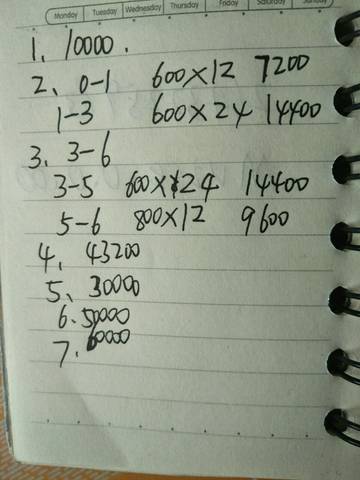 Monday Tuesday Wednesday Thursday Friday Saturday Sunday
1、10000.
2、0-1 600×12 7200
1-3 600×24 14400
3、3-6
3-5 600×24 14400
5-6 800×12 9600
4、43200
5、30000
6.50000
7.60000